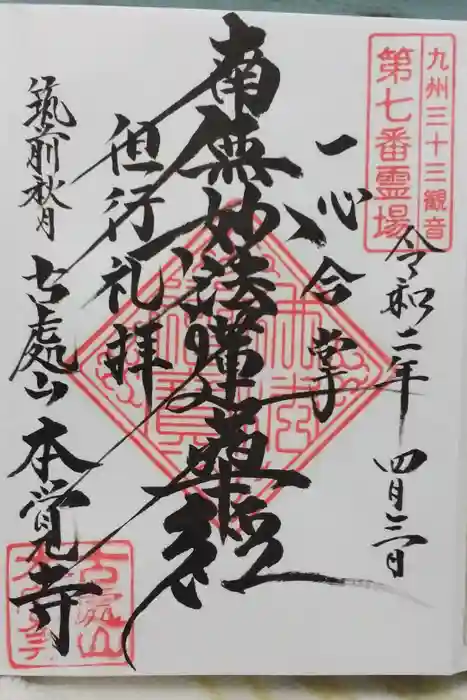 九州三十三観音
第七番霊場
令和二年 四月三日
一心合掌
南無妙法蓮華経
但行礼拝
筑前秋月
古処山 本覚寺